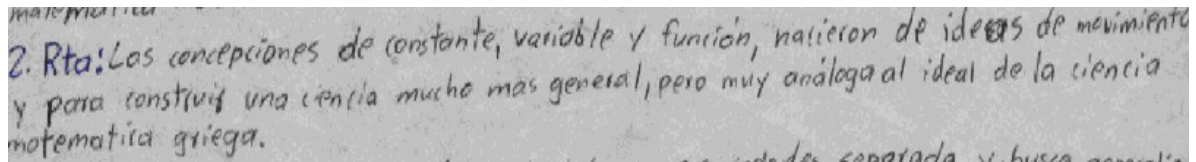 matematica
2. Rta: Las concepciones de constante, variable y función, nacieron de ideas de movimiento
y para construir una ciencia mucho mas general, pero muy análoga al ideal de la ciencia
matematica griega.
separada y busca